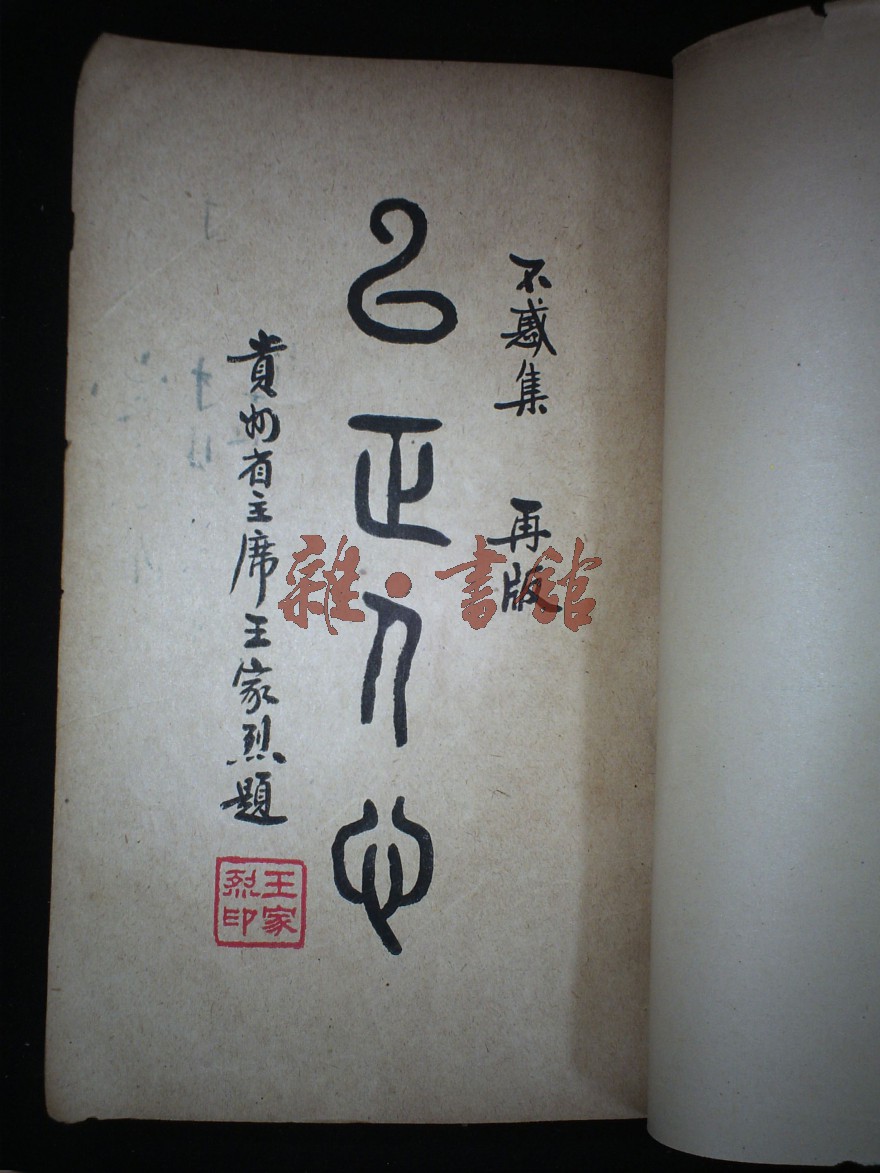 不惑集　再版
㠯正人心
貴州省主席王家烈題
王家烈印
雜·書館